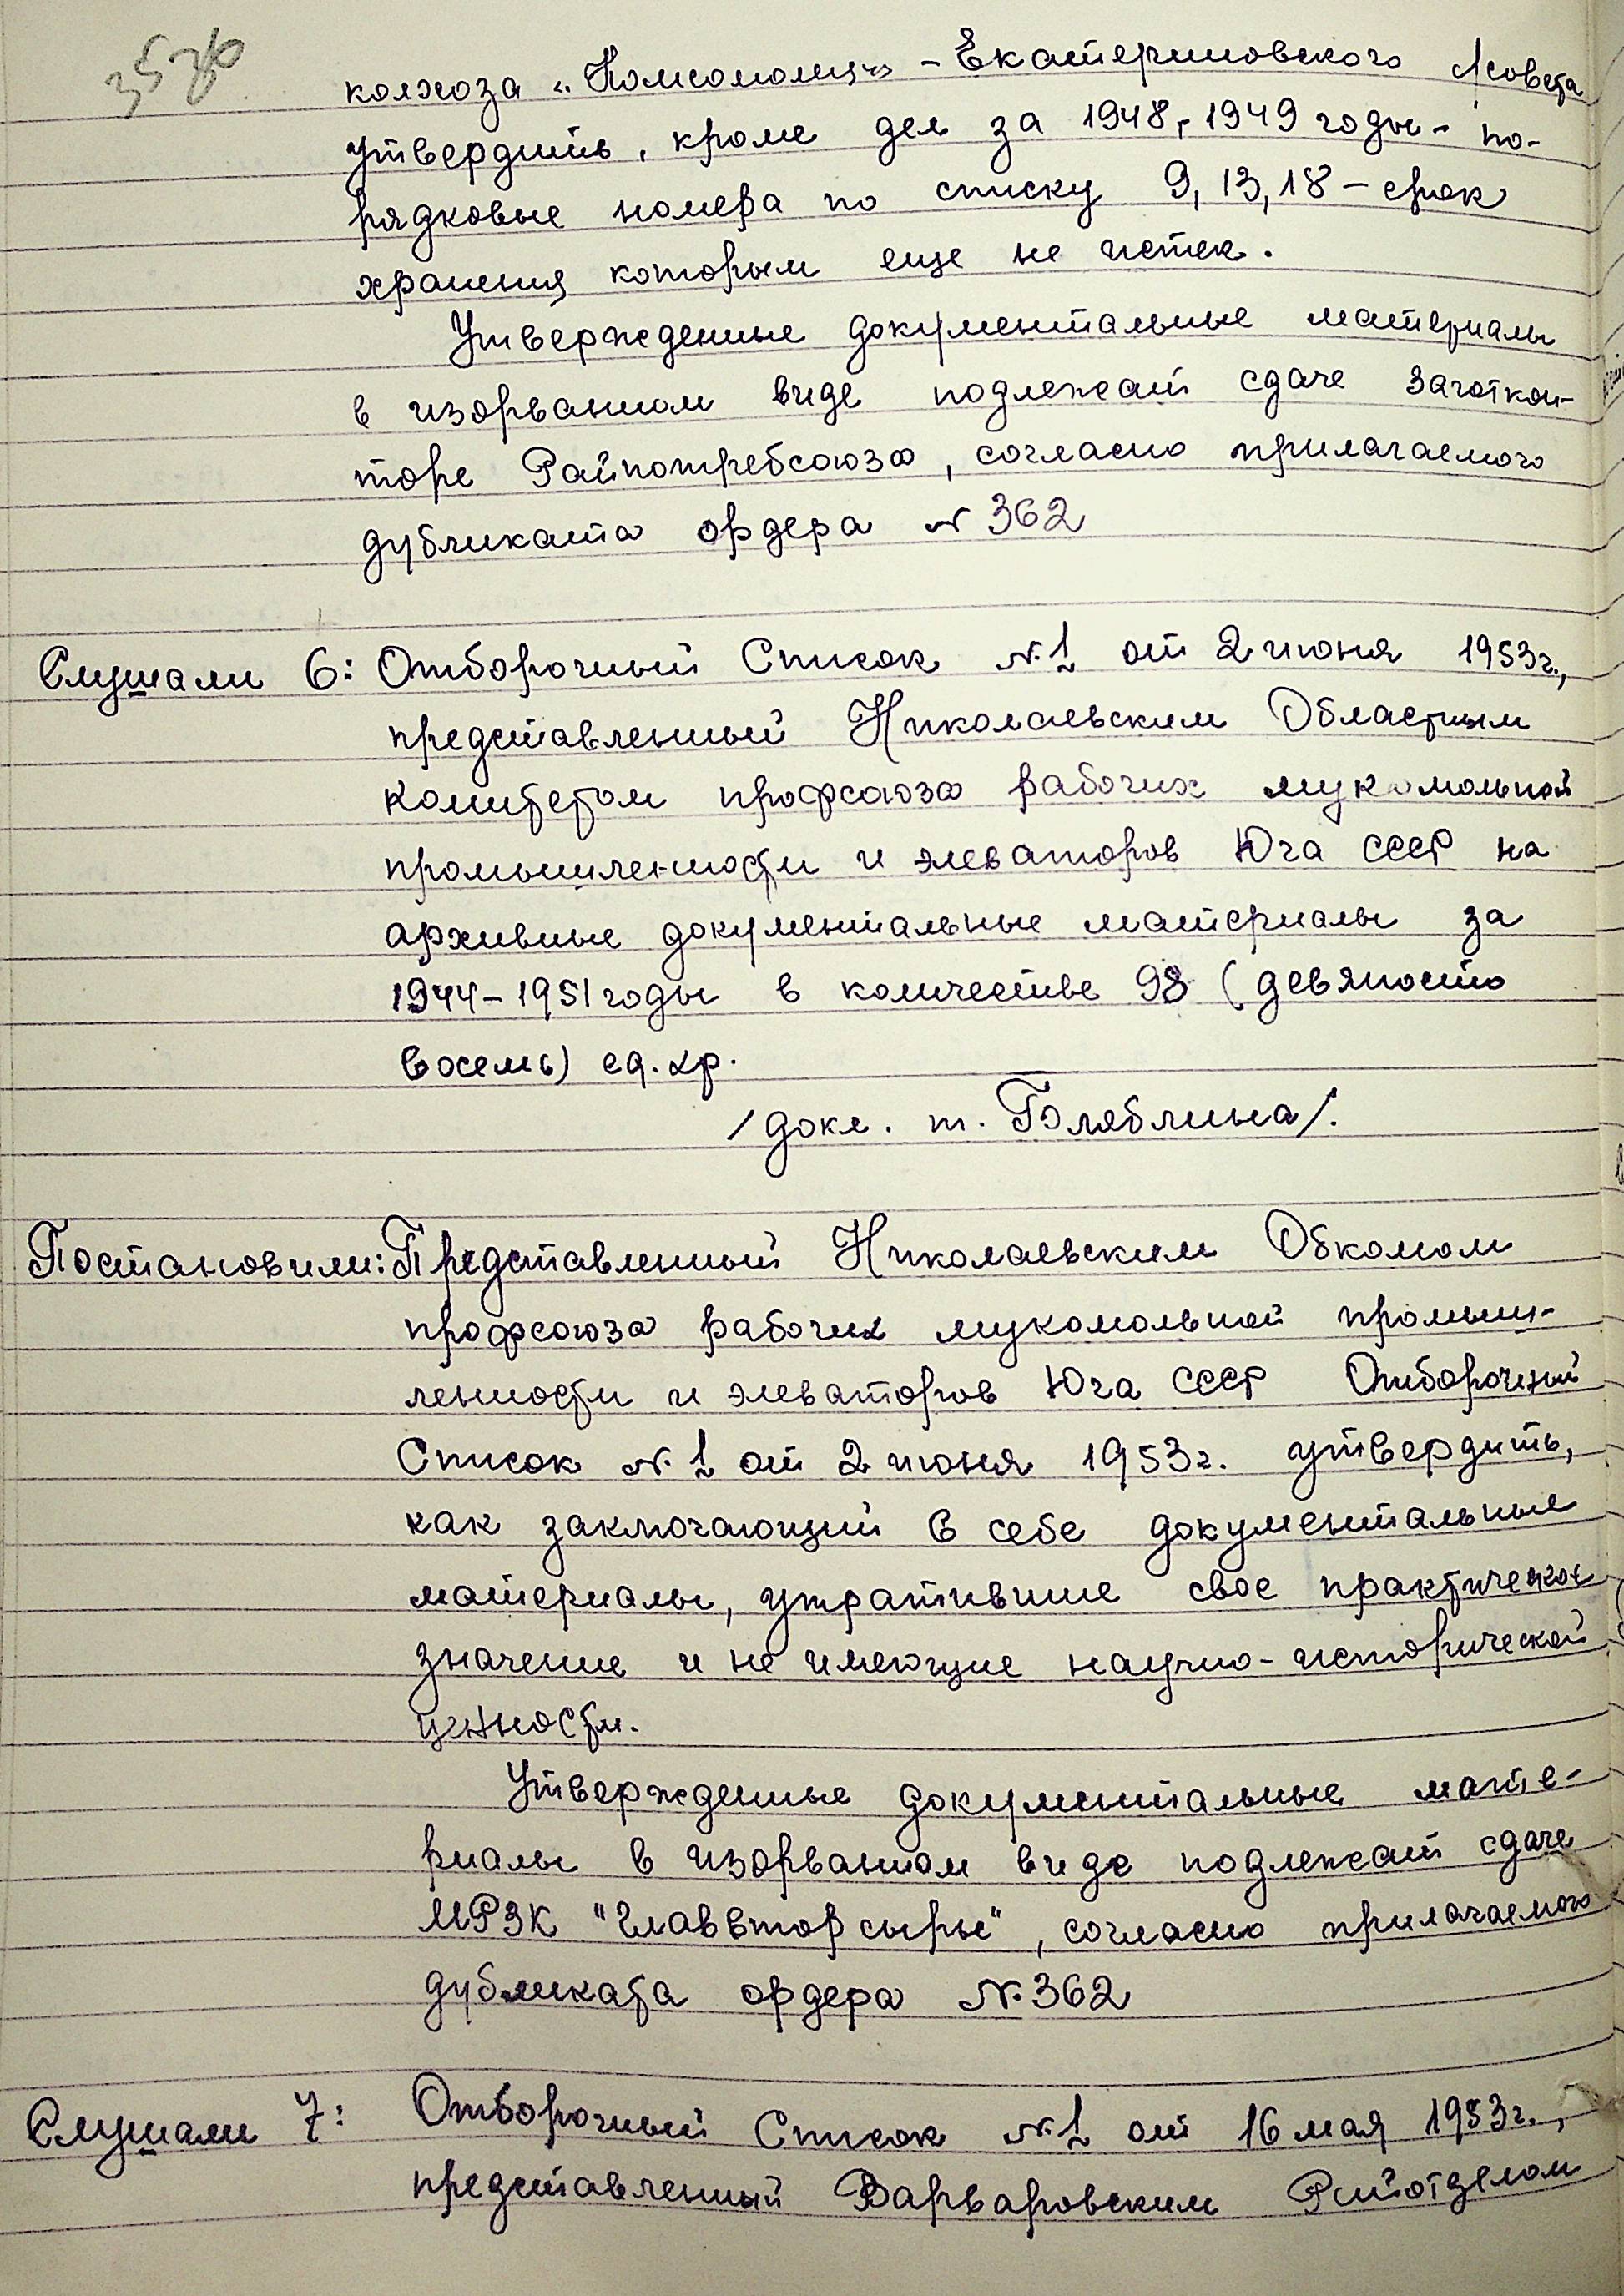 колхоза „Комсомолец" - Екатериновского с/совета
утвердить, кроме дел за 1948,-1949 годы - по-
рядковые номера по списку 9, 13, 18 - срок
хранения которым еще не истек.
Утвержденные документальные материалы
в изорванном виде подлежат сдаче Заготкон-
торе Райпотребсоюза, согласно прилагаемого
дубликата ордера № 362
Слушали 6: Отборочный Список № 1 от 2 июня 1953г.,
представленный Николаевским Областным
комитетом профсоюза рабочих мукомольной
промышленности и элеваторов Юга СССР на
архивные документальные материалы за
1944-1951 годы в количестве 98 (девяносто
восемь) ед. хр.
/докл. т. Бляблина/.
Постановили: Представленный Николаевским Обкомом
профсоюза рабочих мукомольной промыш-
ленности и элеваторов Юга СССР Отборочный
Список № 1 от 2 июня 1953г. утвердить,
как заключающий в себе документальные
материалы, утратившие свое практическое
значение и не имеющие научно-исторической
ценности.
Утвержденные документальные мате-
риалы в изорванном виде подлежат сдаче
МРЗК "Главвторсырье", согласно прилагаемого
дубликата ордера № 362
Слушали 7: Отборочный Список № 1 от 16 мая 1953г.,
представленный Варваровским Райотделом